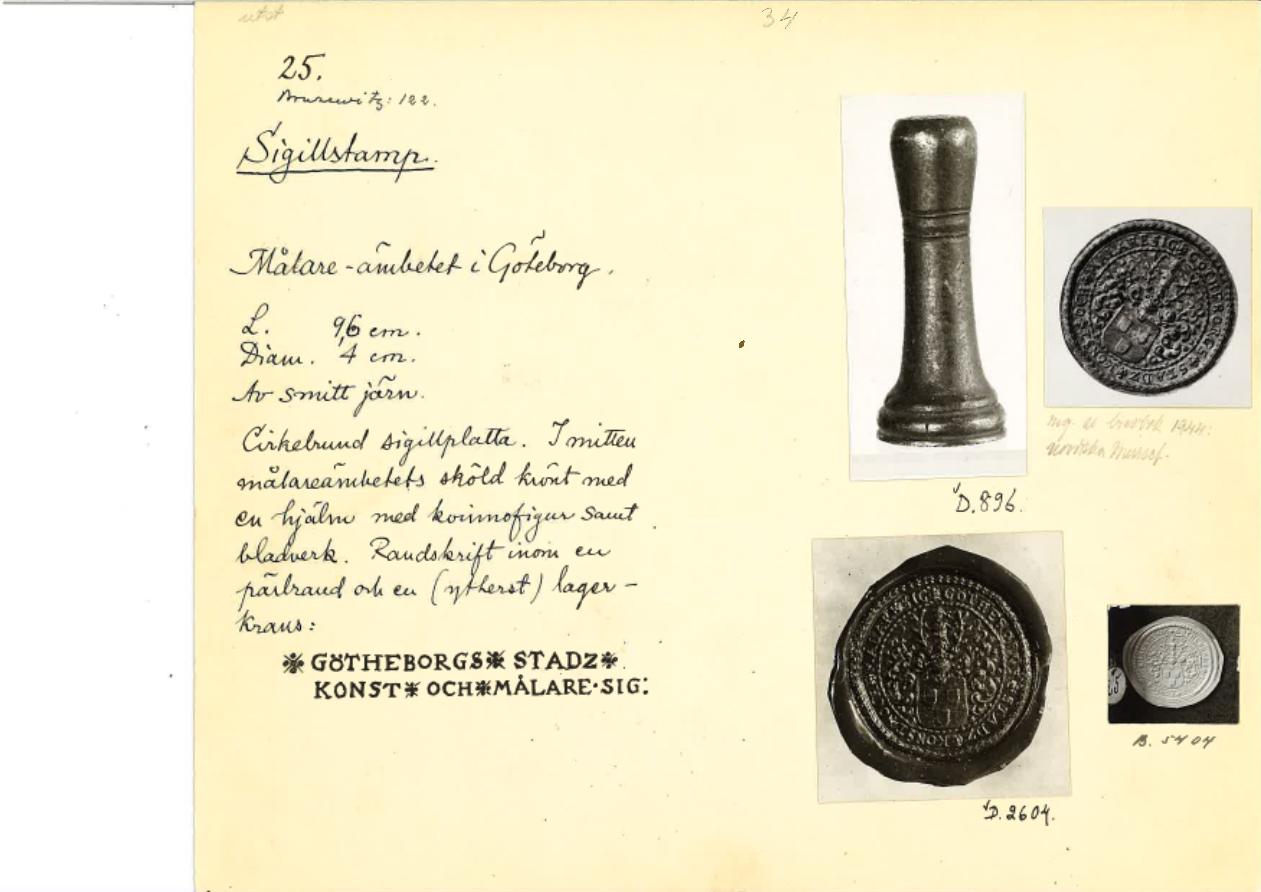 utst
34
25.
Brusewitz: 122.
Sigillstamp.
Målare-ämbetet i Göteborg.
L. 9,6 cm.
Diam. 4 cm.
Av smitt järn.
Cirkelrund sigillplatta. I mitten
målareämbetets sköld krönt med
en hjälm med kvinnofigur samt
bladverk. Randskrift inom en
pärlrand och en (ytterst) lager-
krans:
GÖTHEBORGS STADZ
KONST OCH MÅLARE·SIG:
D.896.
1944:
Nordiska Museet.
D.2604.
B. 5404